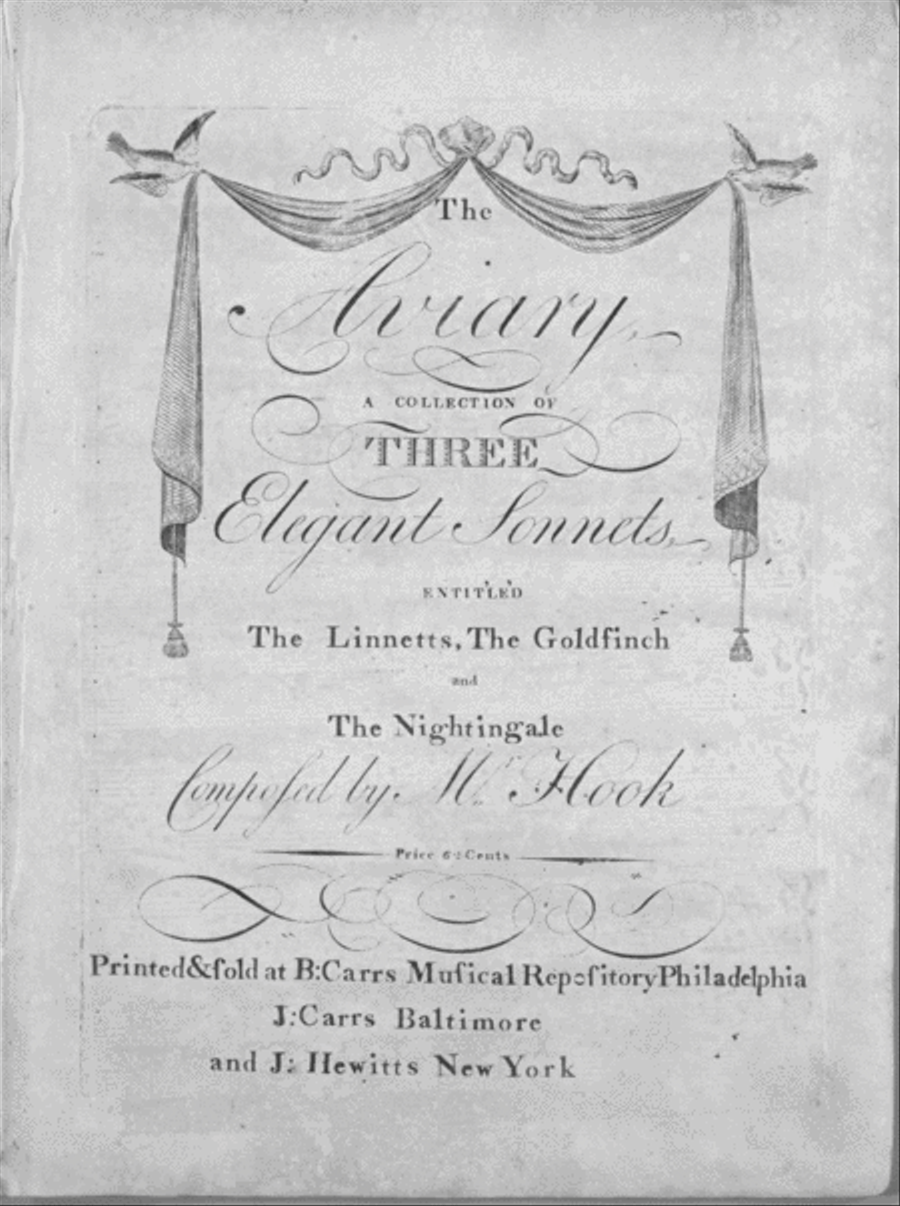 The
Aviary,
A COLLECTION OF
THREE
Elegant Sonnets,
ENTITLED
The Linnetts, The Goldfinch
and
The Nightingale
Compoſed by Mr. Hook
Price Cents
Printed & ſold at B: Carrs Muſical Repoſitory Philadelphia
J: Carrs Baltimore
and J: Hewitts New York